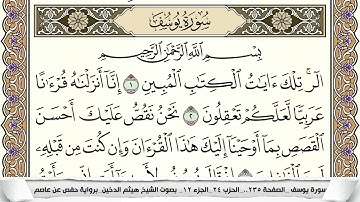 سُورَةُ يُوسُفَ
بِسْمِ اللَّهِ الرَّحْمَٰنِ الرَّحِيمِ
الٓر ۚ تِلْكَ ءَايَٰتُ الْكِتَٰبِ الْمُبِينِ ١ إِنَّآ أَنزَلْنَٰهُ قُرْءَٰنًا
عَرَبِيًّا لَّعَلَّكُمْ تَعْقِلُونَ ٢ نَحْنُ نَقُصُّ عَلَيْكَ أَحْسَنَ
الْقَصَصِ بِمَآ أَوْحَيْنَآ إِلَيْكَ هَٰذَا الْقُرْءَانَ وَإِن كُنتَ مِن قَبْلِهِۦ
سورة يوسف _الصفحة ٢٣٥.. الحزب ٢٤ _الجزء ١٢_ بصوت الشيخ هيثم الدخين _برواية حفص عن عاصم